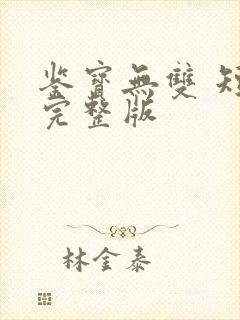 鉴寶無雙 短
完整版
林金泰